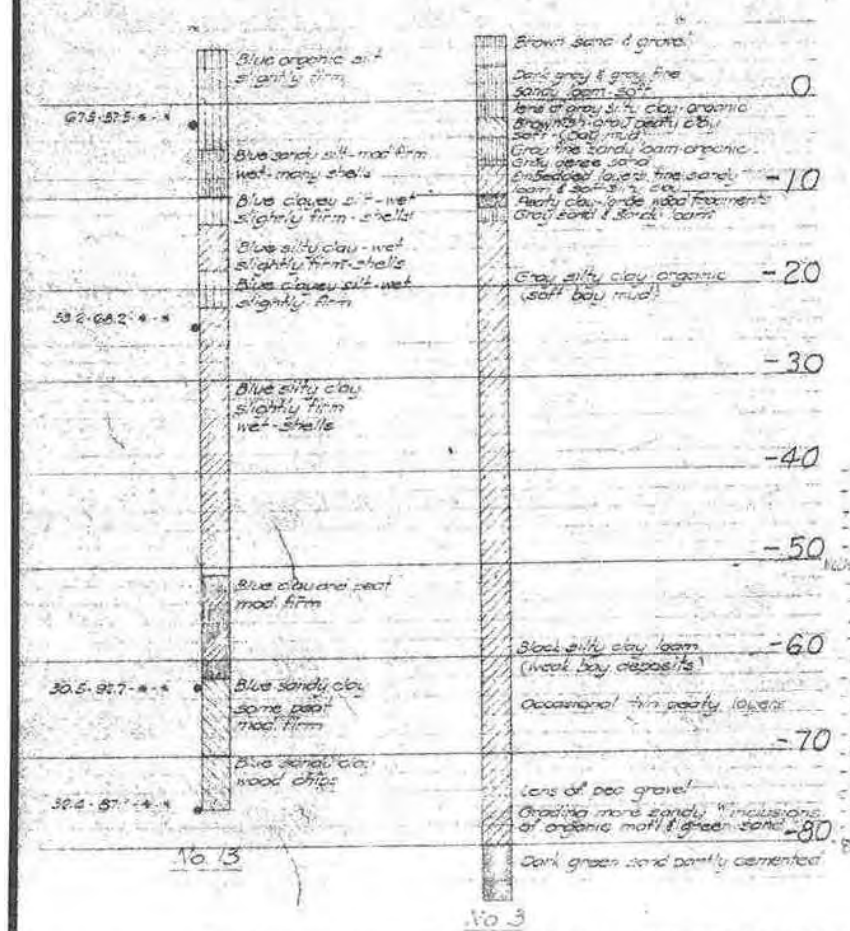 Blue organic silt
slightly firm
67.5-57.5-*-*
Blue sandy silt-mod firm
wet-many shells
Blue clayey silt-wet
slightly firm-shells
Blue silty clay-wet
slightly firm-shells
Blue clayey silt-wet
slightly firm
Blue silty clay
slightly firm
wet-shells
Blue clay and peat
mod. firm
Blue sandy clay
some peat
mod firm
Blue sandy clay
wood chips
No. 13
Brown sand & gravel
Dark gray & gray fine
sandy loam-soft
lens of gray silty clay-organic
Brownish-gray peaty clay
soft (bay mud)
Gray fine sandy loam-organic
Gray sand
Embedded layers, fine sandy
loam & soft silty clay
Peaty clay-large wood fragments
Gray sand & sandy loam
Gray silty clay organic
(soft bay mud)
Black silty clay loam
(weak bay deposits)
Occasional thin peaty layers
Lens of pea gravel
Grading more sandy w/inclusions
of organic mat'l & green sand
Dark green sand partly cemented
No 3
0
-10
-20
-30
-40
-50
-60
-70
-80